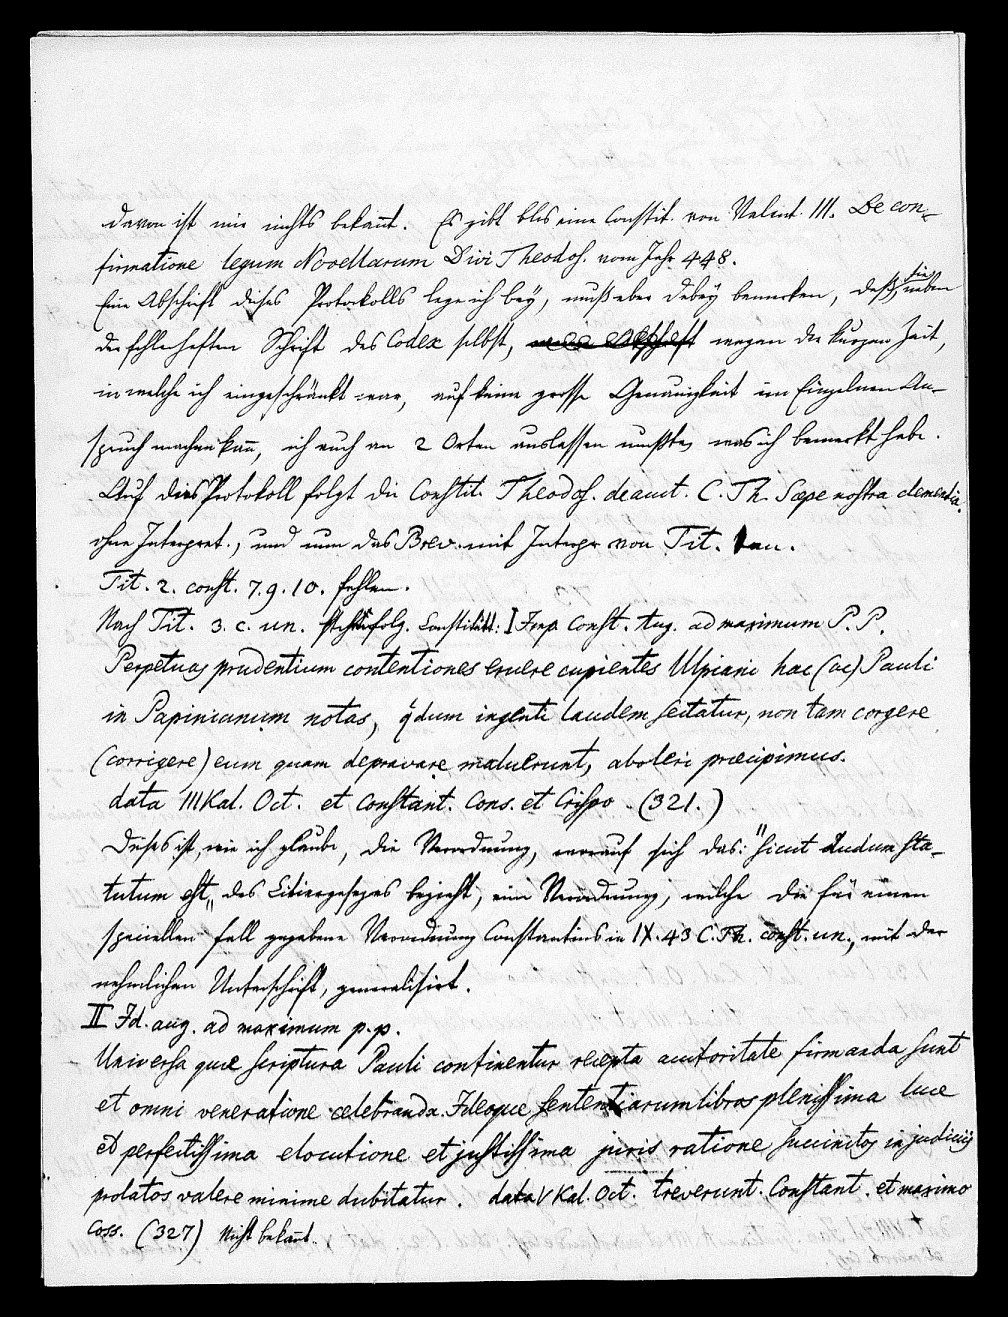 davon ist mir nichts bekañt. Es gibt blos eine Constit. von Valent. III. De con-
firmatione legum Novellarum Divi Theodos. vom Jahr 448.
Eine Abschrift dieses Protokolls lege ich bey, muß aber dabey bemerken, daß sie, neben
der fehlerhaften Schrift des Codex selbst, wegen der kurzen Zeit,
in welche ich eingeschränkt war, auf keine grosse Genauigkeit im Einzelnen An-
spruch machen kañ, ich auch an 2 Orten auslassen mußte, was ich bemerkt habe.
Auf dies Protokoll folgt die Constit. Theodos. de auct. C. Th. Sæpe nostra clementia.
ohne Interpret., und nun das Brev. mit Interpr von Tit. an.
Tit. 2. const. 7. 9. 10. fehlen.
Nach Tit. 3. c. un. folg. Constitut: I Imp Const. Aug. ad maximum P. P.
Perpetuas prudentium contentiones eruere cupientes Ulpiani hac (ac) Pauli
in Papinianum notas, q̃dum ingenti laudem sectatur, non tam corgere
(corrigere) eum quam depravare maluerunt, aboleri præcipimus.
data III Kal. Oct. et Constant. Cons. et Crispo (321.)
Dieses ist, wie ich glaube, die Verordnung, worauf sich das: "sicut dudum sta-
tutum est" des Citiergesezes bezieht, eine Verordnung, welche die für einen
speciellen Fall gegebene Verordnung Constantins in IX. 43 C. Th. const. un., mit der
nehmlichen Unterschrift, generalisirt.
II Id. aug. ad maximum p. p.
Universa quæ scriptura Pauli continentur recepta auctoritate firmanda sunt
et omni veneratione celebranda. Ideoque sententiarum libros plenissima luce
et perfectissima elocutione et justissima juris ratione succinctos in judiciis
prolatos valere minime dubitatur. data V Kal. Oct. treverunt. Constant. et maximo
Coss. (327) Nicht bekañt.